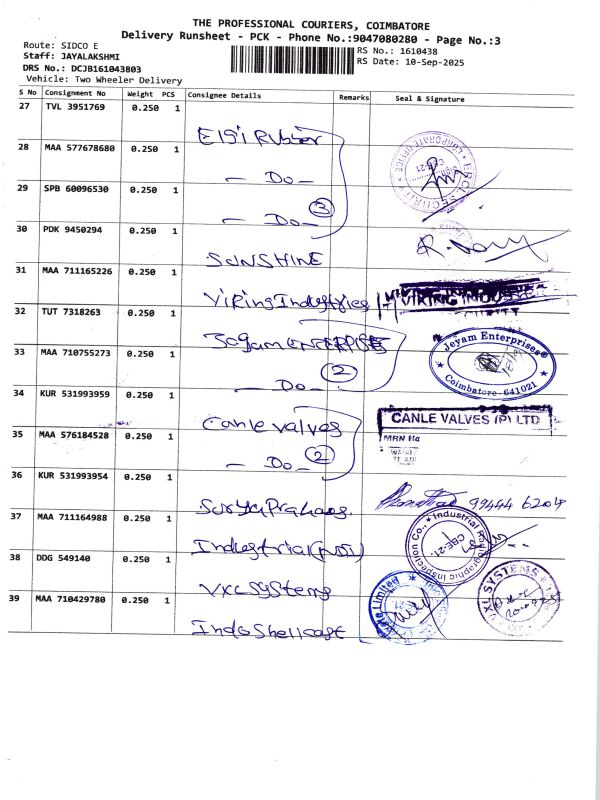 THE PROFESSIONAL COURIERS, COIMBATORE
Delivery Runsheet - PCK - Phone No.:9047080280 - Page No.:3
Route: SIDCO E
Staff: JAYALAKSHMI
RS No.: 1610438
DRS No.: DCJB161043803
RS Date: 10-Sep-2025
Vehicle: Two Wheeler Delivery
S No Consignment No Weight PCS Consignee Details Remarks Seal & Signature
27 TVL 3951769 0.250 1
Elgi Rubber
28 MAA 577678680 0.250 1
CORPORATE OFFICE
SECURITY
CBE-21
— Do —
29 SPB 60096530 0.250 1
— Do — 3
30 PDK 9450294 0.250 1
SUNSHINE
31 MAA 711165226 0.250 1
Viking Industries
VIKING INDU
32 TUT 7318263 0.250 1
Jeyam ENTERPRISE
33 MAA 710755273 0.250 1
Jeyam Enterprises
Coimbatore - 641021
— Do — 2
34 KUR 531993959 0.250 1
Canle valves
CANLE VALVES (P) LTD
35 MAA 576184528 0.250 1
MRN No
— Do — 2
36 KUR 531993954 0.250 1
Surya Prakaas.
99444 6204
37 MAA 711164988 0.250 1
Industrial Radiographic Inspection Co.,
CBE-21.
Industrial (NDT)
38 DDG 549140 0.250 1
VXL Systems
VXL SYSTEMS
39 MAA 710429780 0.250 1
Private Limited
Indo Shell cast